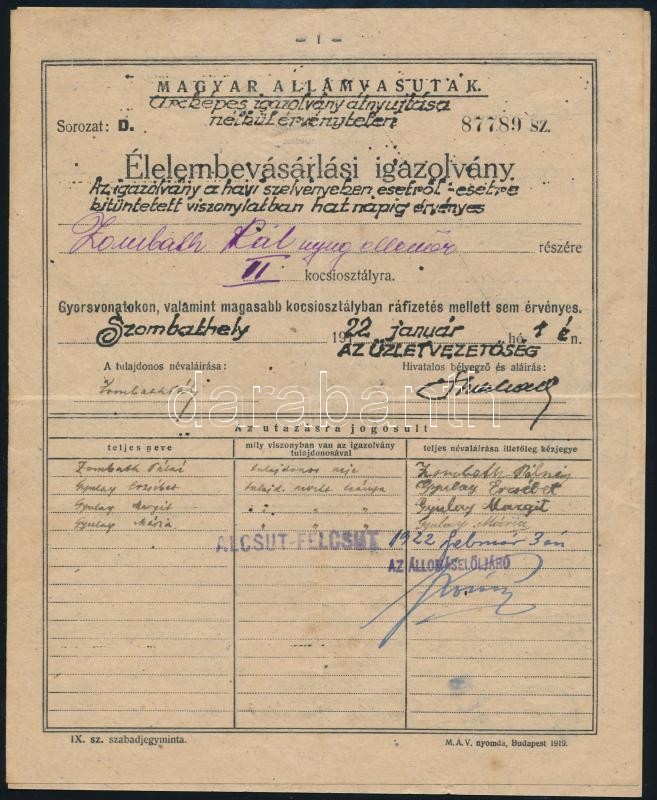 - 1 -
MAGYAR ÁLLAMVASUTAK.
Arcképes igazolvány átnyujtása
nélkül érvénytelen
Sorozat: D.
87789 sz.
Élelembevásárlási igazolvány
Az igazolvány a havi szelvényeken esetről-esetre
kitüntetett viszonylatban hat napig érvényes
Zombath Pál nyug ellenőr részére
II kocsiosztályra.
Gyorsvonatokon, valamint magasabb kocsiosztályban ráfizetés mellett sem érvényes.
Szombathely 1922 január hó 1 én.
AZ ÜZLETVEZETŐSÉG
A tulajdonos névaláírása: Hivatalos bélyegző és aláírás:
Zombath Pál
darabanth
Az utazásra jogosult
teljes neve mily viszonyban van az igazolvány tulajdonosával teljes névaláírása illetőleg kézjegye
Zombath Pálné tulajdonos neje Zombath Pálné
Gyulay Erzsébet tulajd. nevelt leánya Gyulay Erzsébet
Gyulay Margit " " " Gyulay Margit
Gyulay Mária " " " Gyulay Mária
ALCSUT-FELCSUT 1922 február 3 án
AZ ÁLLOMÁSELÖLJÁRÓ
IX. sz. szabadjegyminta.
M. Á. V. nyomda, Budapest 1919.